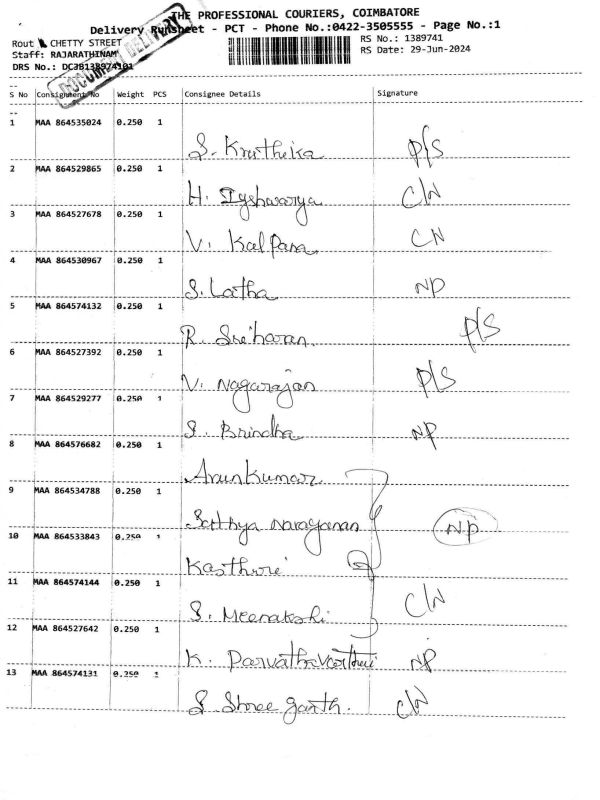 THE PROFESSIONAL COURIERS, COIMBATORE
Delivery Runsheet - PCT - Phone No.:0422-3505555 - Page No.:1
Rout CHETTY STREET
RS No.: 1389741
Staff: RAJARATHINAM
RS Date: 29-Jun-2024
DRS No.: DC3B138974101
DOCUMENT DELIVERY
--
S No Consignment No Weight PCS Consignee Details Signature
--
1 MAA 864535024 0.250 1
S. Kruthika P/S
2 MAA 864529865 0.250 1
H. Iyshwarya C/N
3 MAA 864527678 0.250 1
V. Kalpana CN
4 MAA 864530967 0.250 1
S. Latha NP
5 MAA 864574132 0.250 1
R. Sriharan. P/S
6 MAA 864527392 0.250 1
V. Nagarajan P/S
7 MAA 864529277 0.250 1
S. Brindha NP
8 MAA 864576682 0.250 1
Arunkumar
9 MAA 864534788 0.250 1
Sathya Narayanan NP
10 MAA 864533843 0.250 1
Kasthuri
11 MAA 864574144 0.250 1
S. Meenakshi C/N
12 MAA 864527642 0.250 1
K. Parvathavarthini NP
13 MAA 864574131 0.250 1
S Shree garth. C/N